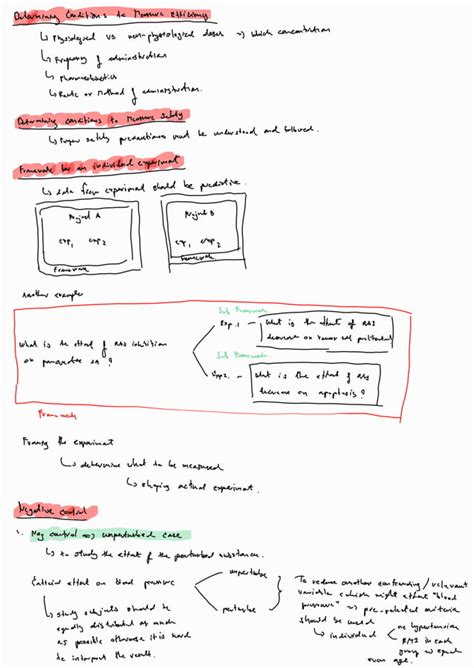 Determining Conditions to Measure Efficiency
↳ Physiological vs non-physiological doses => which concentration
↳ Frequency of administration
↳ Pharmacokinetics
↳ Route or Method of administration.
Determining conditions to Measure Safety
↳ Proper safety precautions must be understood and followed.
Framework for an individual experiment
↳ data from experiment should be predictive.
Project A
Project B
exp1 exp2
exp1 exp2
framework
framework
Another example:
Sub Framework
Exp.1 What is the effect of RAS
decrease on tumor cell proliferation?
What is the effect of RAS inhibition
on pancreatic
Sub Framework
Exp2. What is the effect of RAS
decrease on apoptosis?
Framework
Framing the experiment
↳ determine what to be measured
↳ shaping actual experiment.
Negative control
1. Neg control => unperturbed case
↳ to study the effect of the perturbed substances.
unperturbe
Caffeine effect on blood pressure
perturbe
To reduce another confounding / relevant
variable which might affect "blood
pressure" => pre-selected criteria
should be used
↳ individual
no hypertension
BMI in each
group is equal
even age.
↳ study subjects should be
equally distributed as much
as possible otherwise it is hard
to interpret the result.